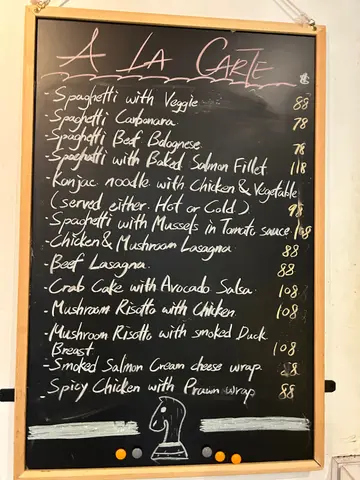 A LA CARTE
$
Spaghetti with Veggie 88
Spaghetti Carbonara 78
Spaghetti Beef Bolognese 78
Spaghetti with Baked Salmon Fillet 118
- Konjac noodle with Chicken & Vegetable
(served either Hot or Cold) 98
- Spaghetti with Mussels in Tomato sauce 108
- Chicken & Mushroom Lasagna 88
- Beef Lasagna 88
- Crab Cake with Avocado Salsa 108
- Mushroom Risotto with Chicken 108
- Mushroom Risotto with smoked Duck
Breast 108
- Smoked Salmon Cream cheese wrap
Spicy Chicken with Prawn wrap 88